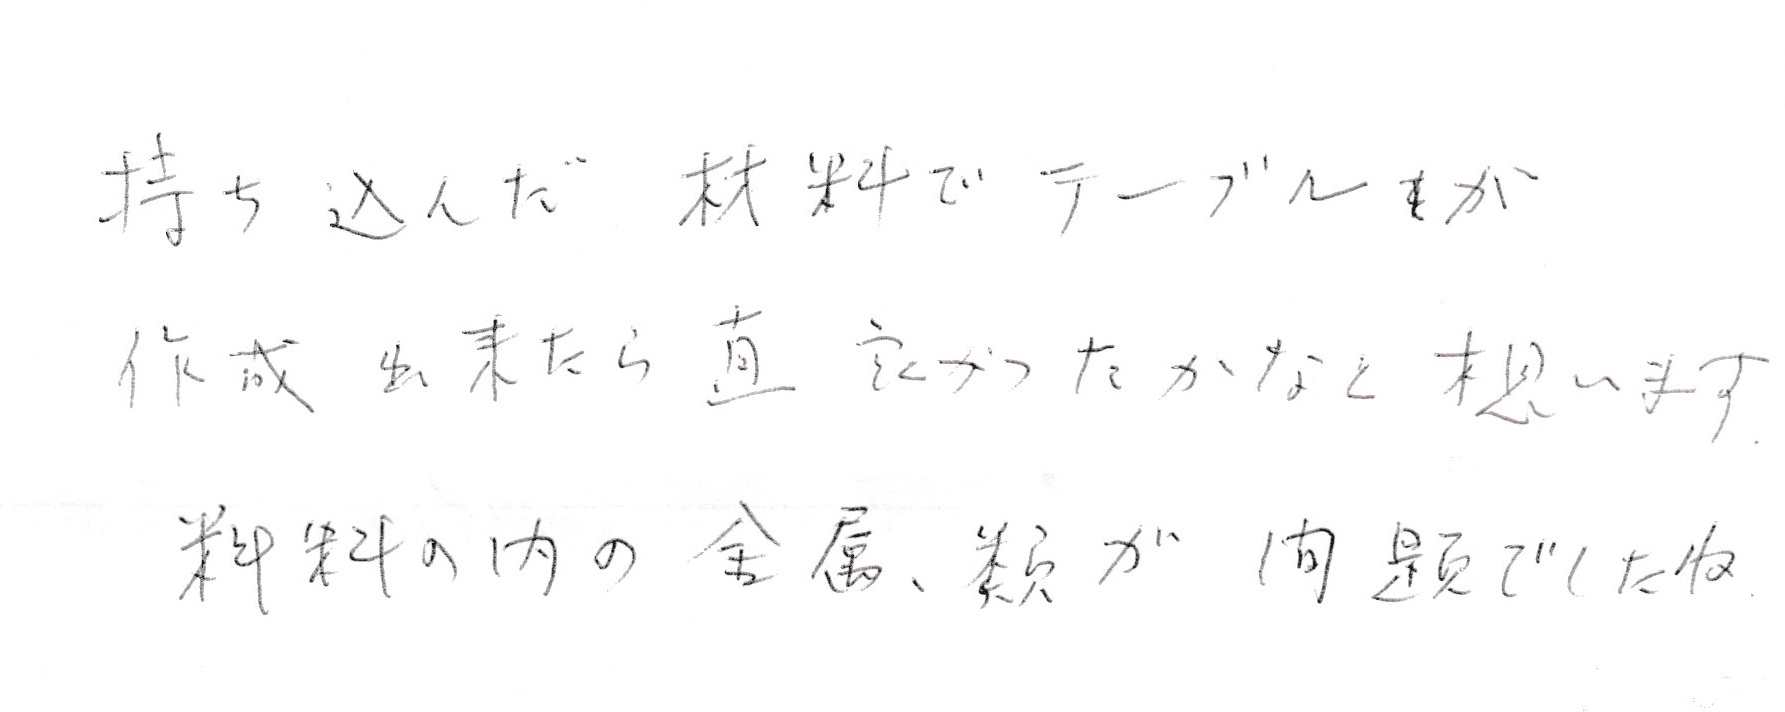 持ち込んだ 材料でテーブルが
作成出来たら直良かったかなと想います.
料料の内の金属、類が問題でしたね.